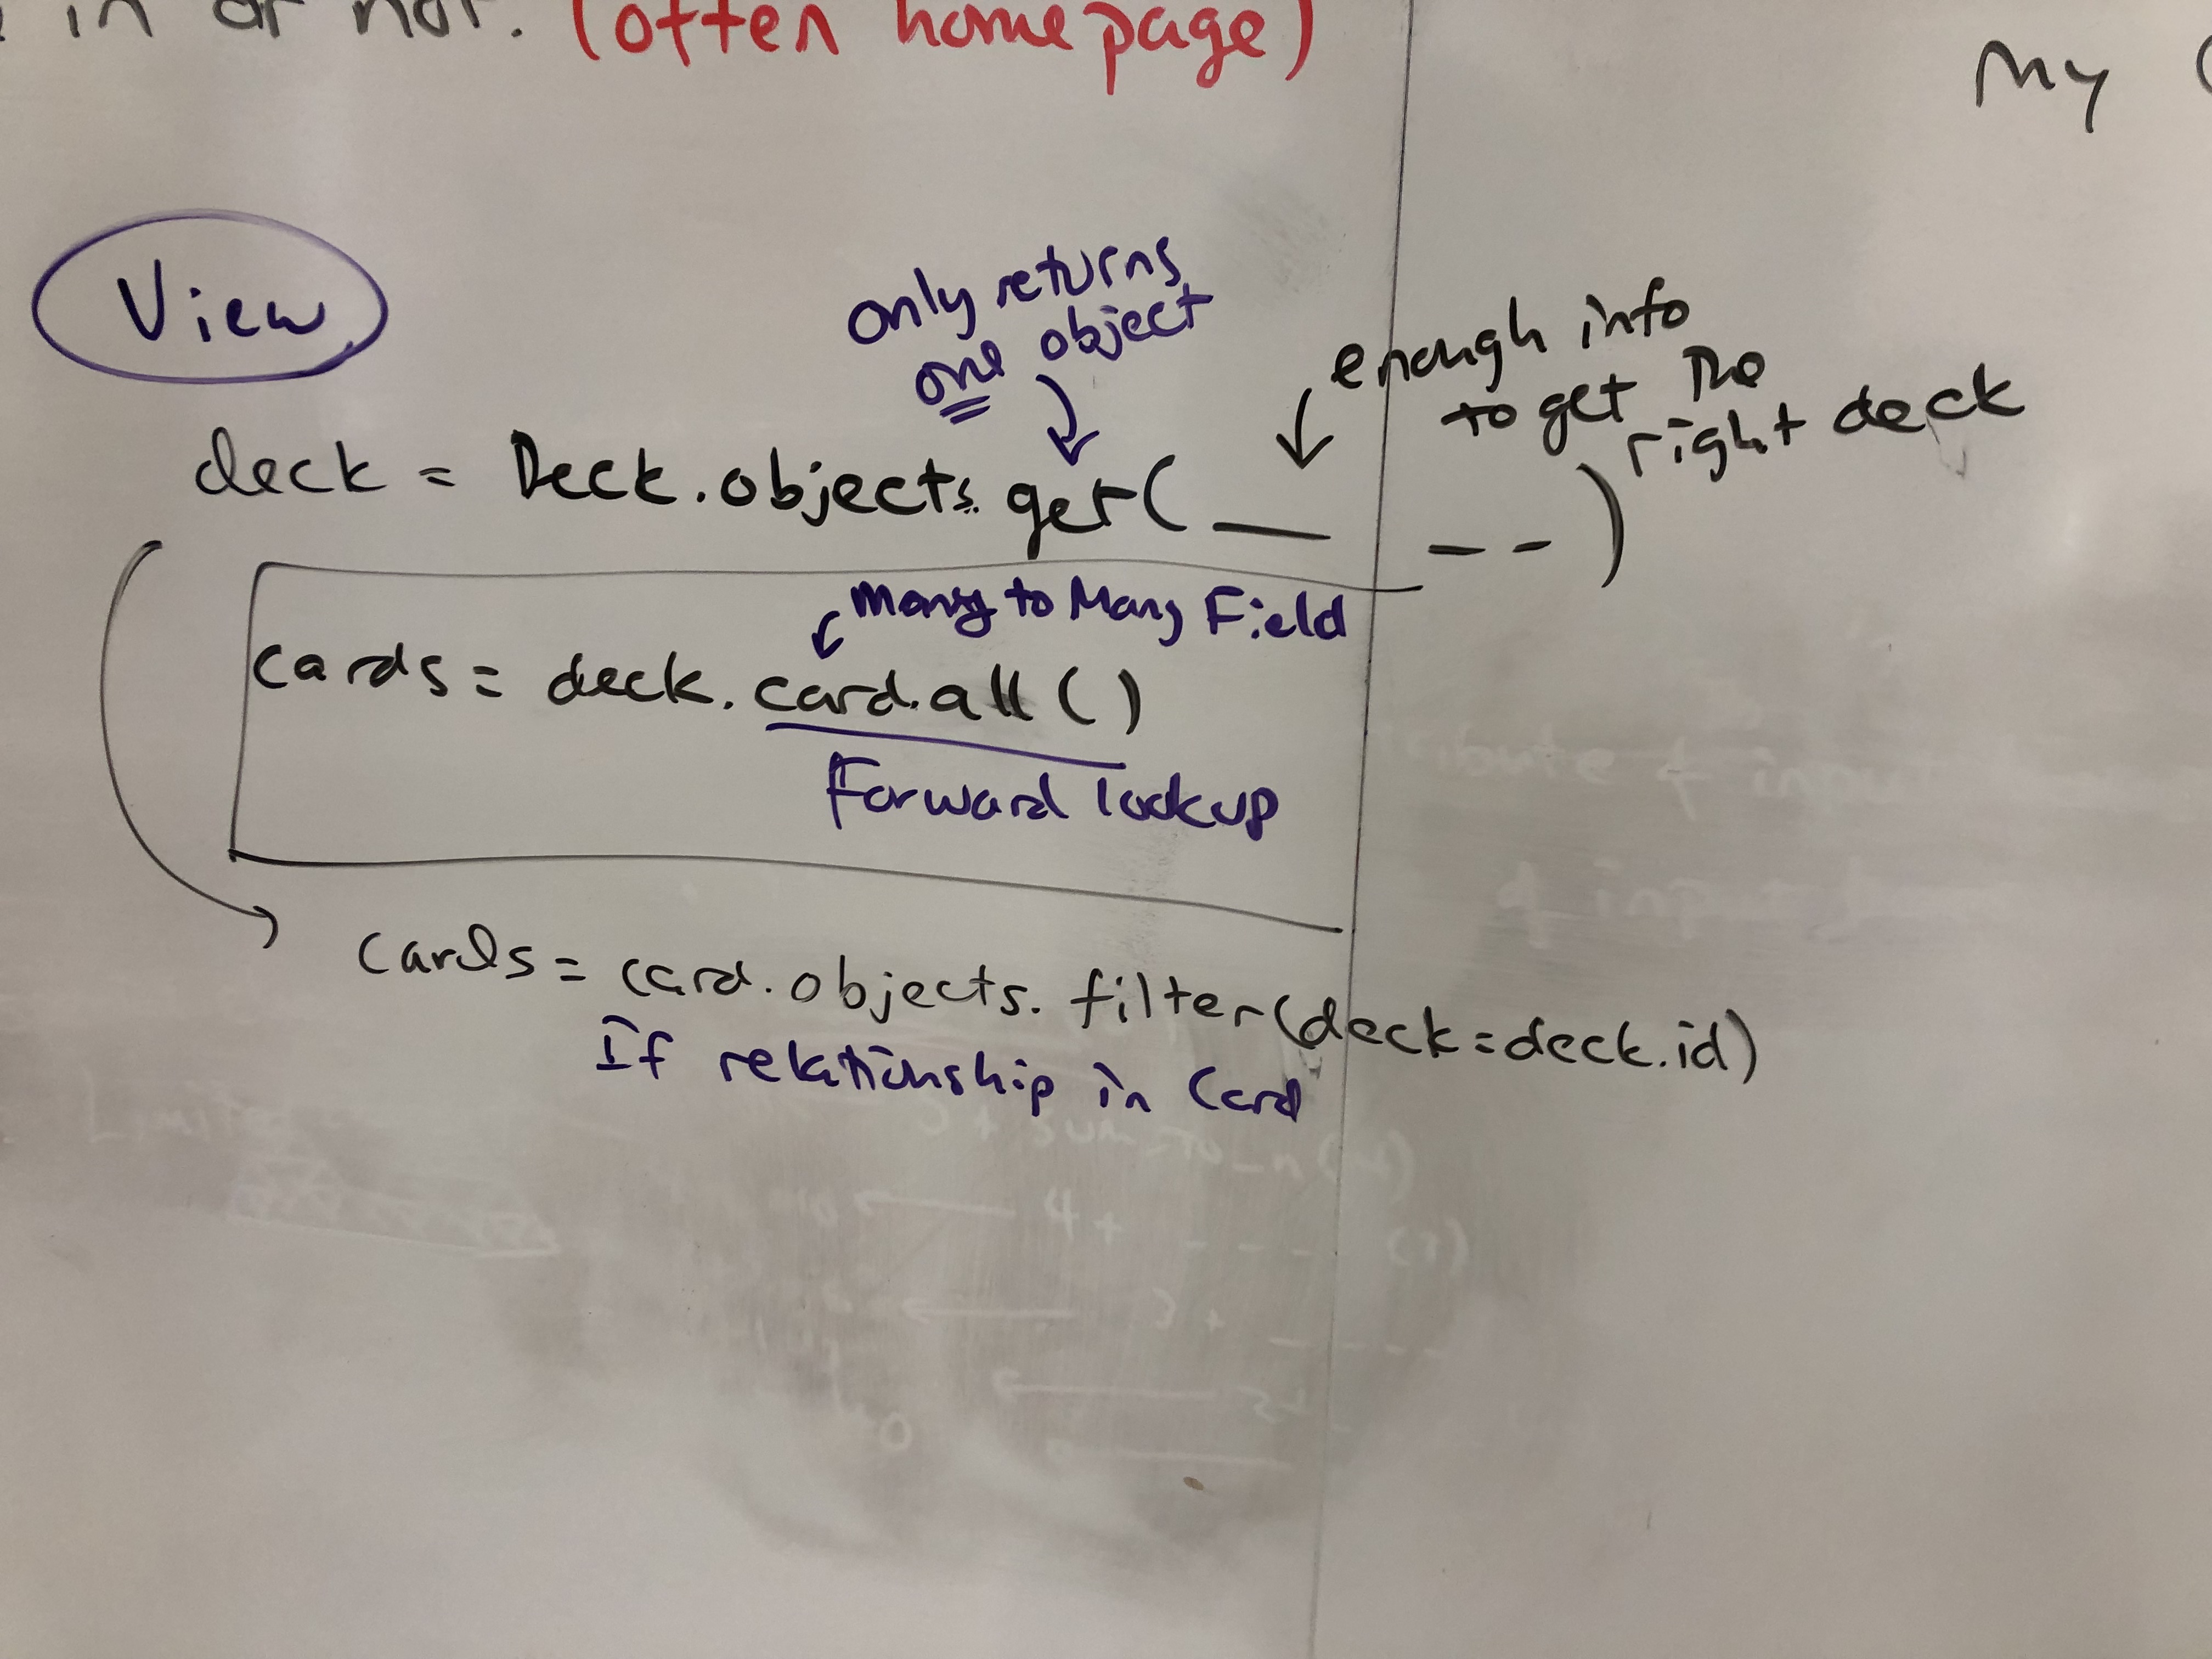 in or not. (often homepage)
My
View
only returns
one object
enough info
to get the
right deck
deck = Deck.objects.get( __ _ _ )
Many to Many Field
cards = deck.card.all()
Forward lookup
cards = card.objects.filter(deck=deck.id)
If relationship in Card